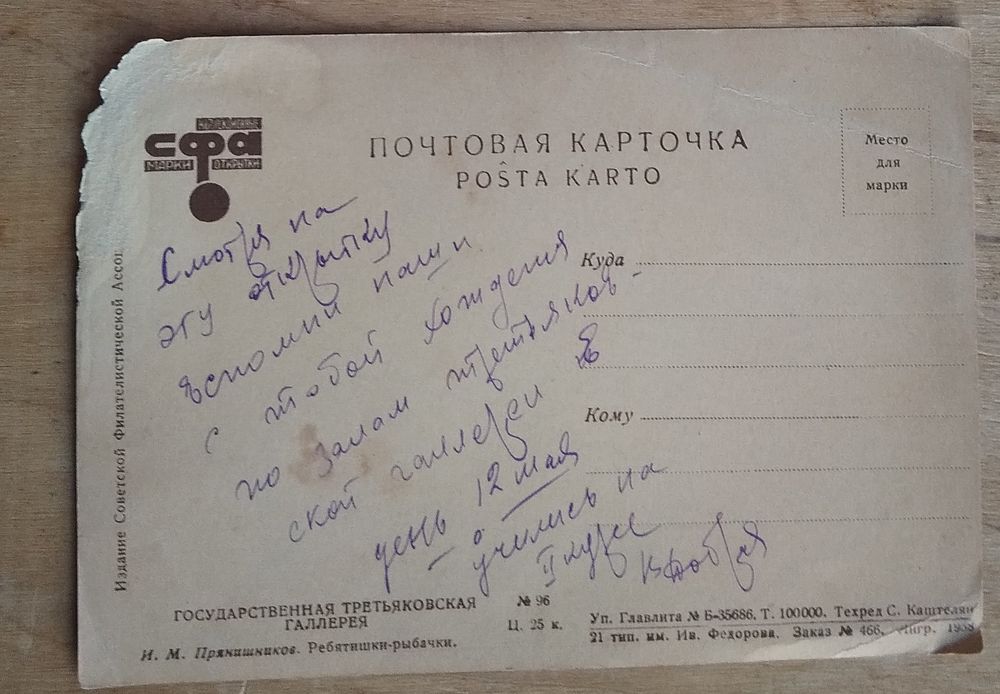 КОЛЛЕКЦИОННЫЕ
СФА
МАРКИ ОТКРЫТКИ
ПОЧТОВАЯ КАРТОЧКА
POŜTA KARTO
Место
для
марки
Смотря на
эту открытку
вспомни наши
с тобой хождения
по залам третьяков-
ской галлереи в
день 12 мая
учились на
II курсе
Куда
Кому
Издание Советской Филателистической Ассоц
ГОСУДАРСТВЕННАЯ ТРЕТЬЯКОВСКАЯ
ГАЛЛЕРЕЯ
И. М. Прянишников. Ребятишки-рыбачки.
№ 96
Ц. 25 к.
Уп. Главлита № Б-35686. Т. 100000. Техред С. Каштелян
21 тип. им. Ив. Федорова. Заказ № 466. 1938